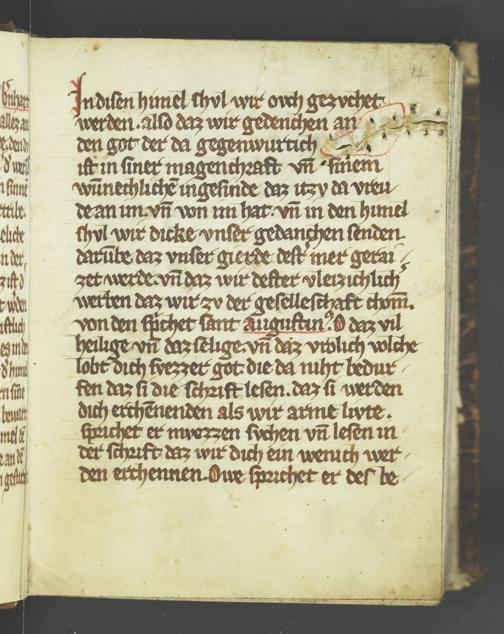 14
In disen himel shvl wir ovch gezvchet
werden. also daz wir gedenchen an
den got der da gegenwurtich
ist in siner magenchraft vn̄ sinem
wūnechlichē ingesinde daz itzv da vreu
de an im. vn̄ von im hat. vn̄ in den himel
shvl wir dicke vnser gedanchen senden.
darūbe daz vnser gierde dest mer gerai
zet werde. vn̄ daz wir dester vleizichlich
werben daz wir zv der geselleschaft chom̄.
von den sp̄chet sant augustin⁹. O daz vil
heilige vn̄ daz selige. vn̄ daz vrolich volche
lobt dich svezzer got. die da niht bedur
fen daz si die schrift lesen. daz si werden
dich erchēnenden als wir arme livte.
sprichet er mvozzen svchen vn̄ lesen in
der schrift daz wir dich ein wenich wer
den erchennen. Owe sprichet er des be